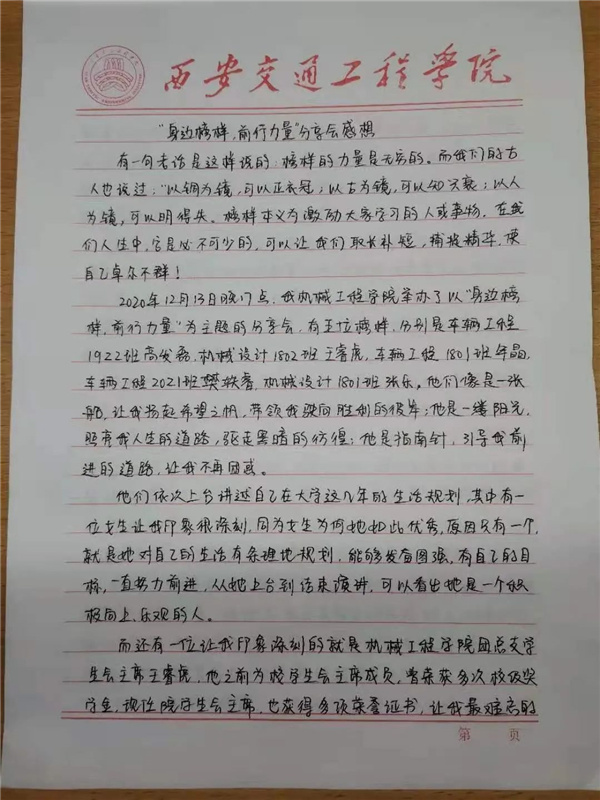 西安交通工程学院
"身边榜样,前行力量"分享会感想
有一句老话是这样说的:榜样的力量是无穷的。而我们的古
人也说过:"以铜为镜,可以正衣冠;以古为镜,可以知兴衰;以人
为镜,可以明得失。榜样本义为激励大家学习的人或事物,在我
们人生中,它是必不可少的,可以让我们取长补短,摘拔精华,使
自己卓尔不群!
2020年12月13日晚17点,我机械工程学院举办了以"身边榜
样,前行力量"为主题的分享会,有五位榜样,分别是车辆工程
1922班高发磊,机械设计1802班王睿虎,车辆工程1801班年晶,
车辆工程2021班樊轶睿,机械设计1801班张乐。他们像是一张
帆,让我扬起希望之帆,带领我驶向胜利的彼岸;他是一缕阳光,
照亮我人生的道路,驱走黑暗的彷徨;他是指南针,引导我前
进的道路,让我不再困惑。
他们依次上台讲述自己在大学这几年的生活规划,其中有一
位女生让我印象很深刻,因为女生为何她如此优秀,原因只有一个,
就是她对自己的生活有条理地规划,能够发奋图强。有自己的目
标,一直努力前进,从她上台到结束演讲,可以看出她是一个积
极向上、乐观的人。
而还有一位让我印象深刻的就是机械工程学院团总支学
生会主席王睿虎,他之前为校学生会主席成员,曾荣获多次校级奖
学金,现任院学生会主席,也获得多项荣誉证书,让我最难忘的
第 页